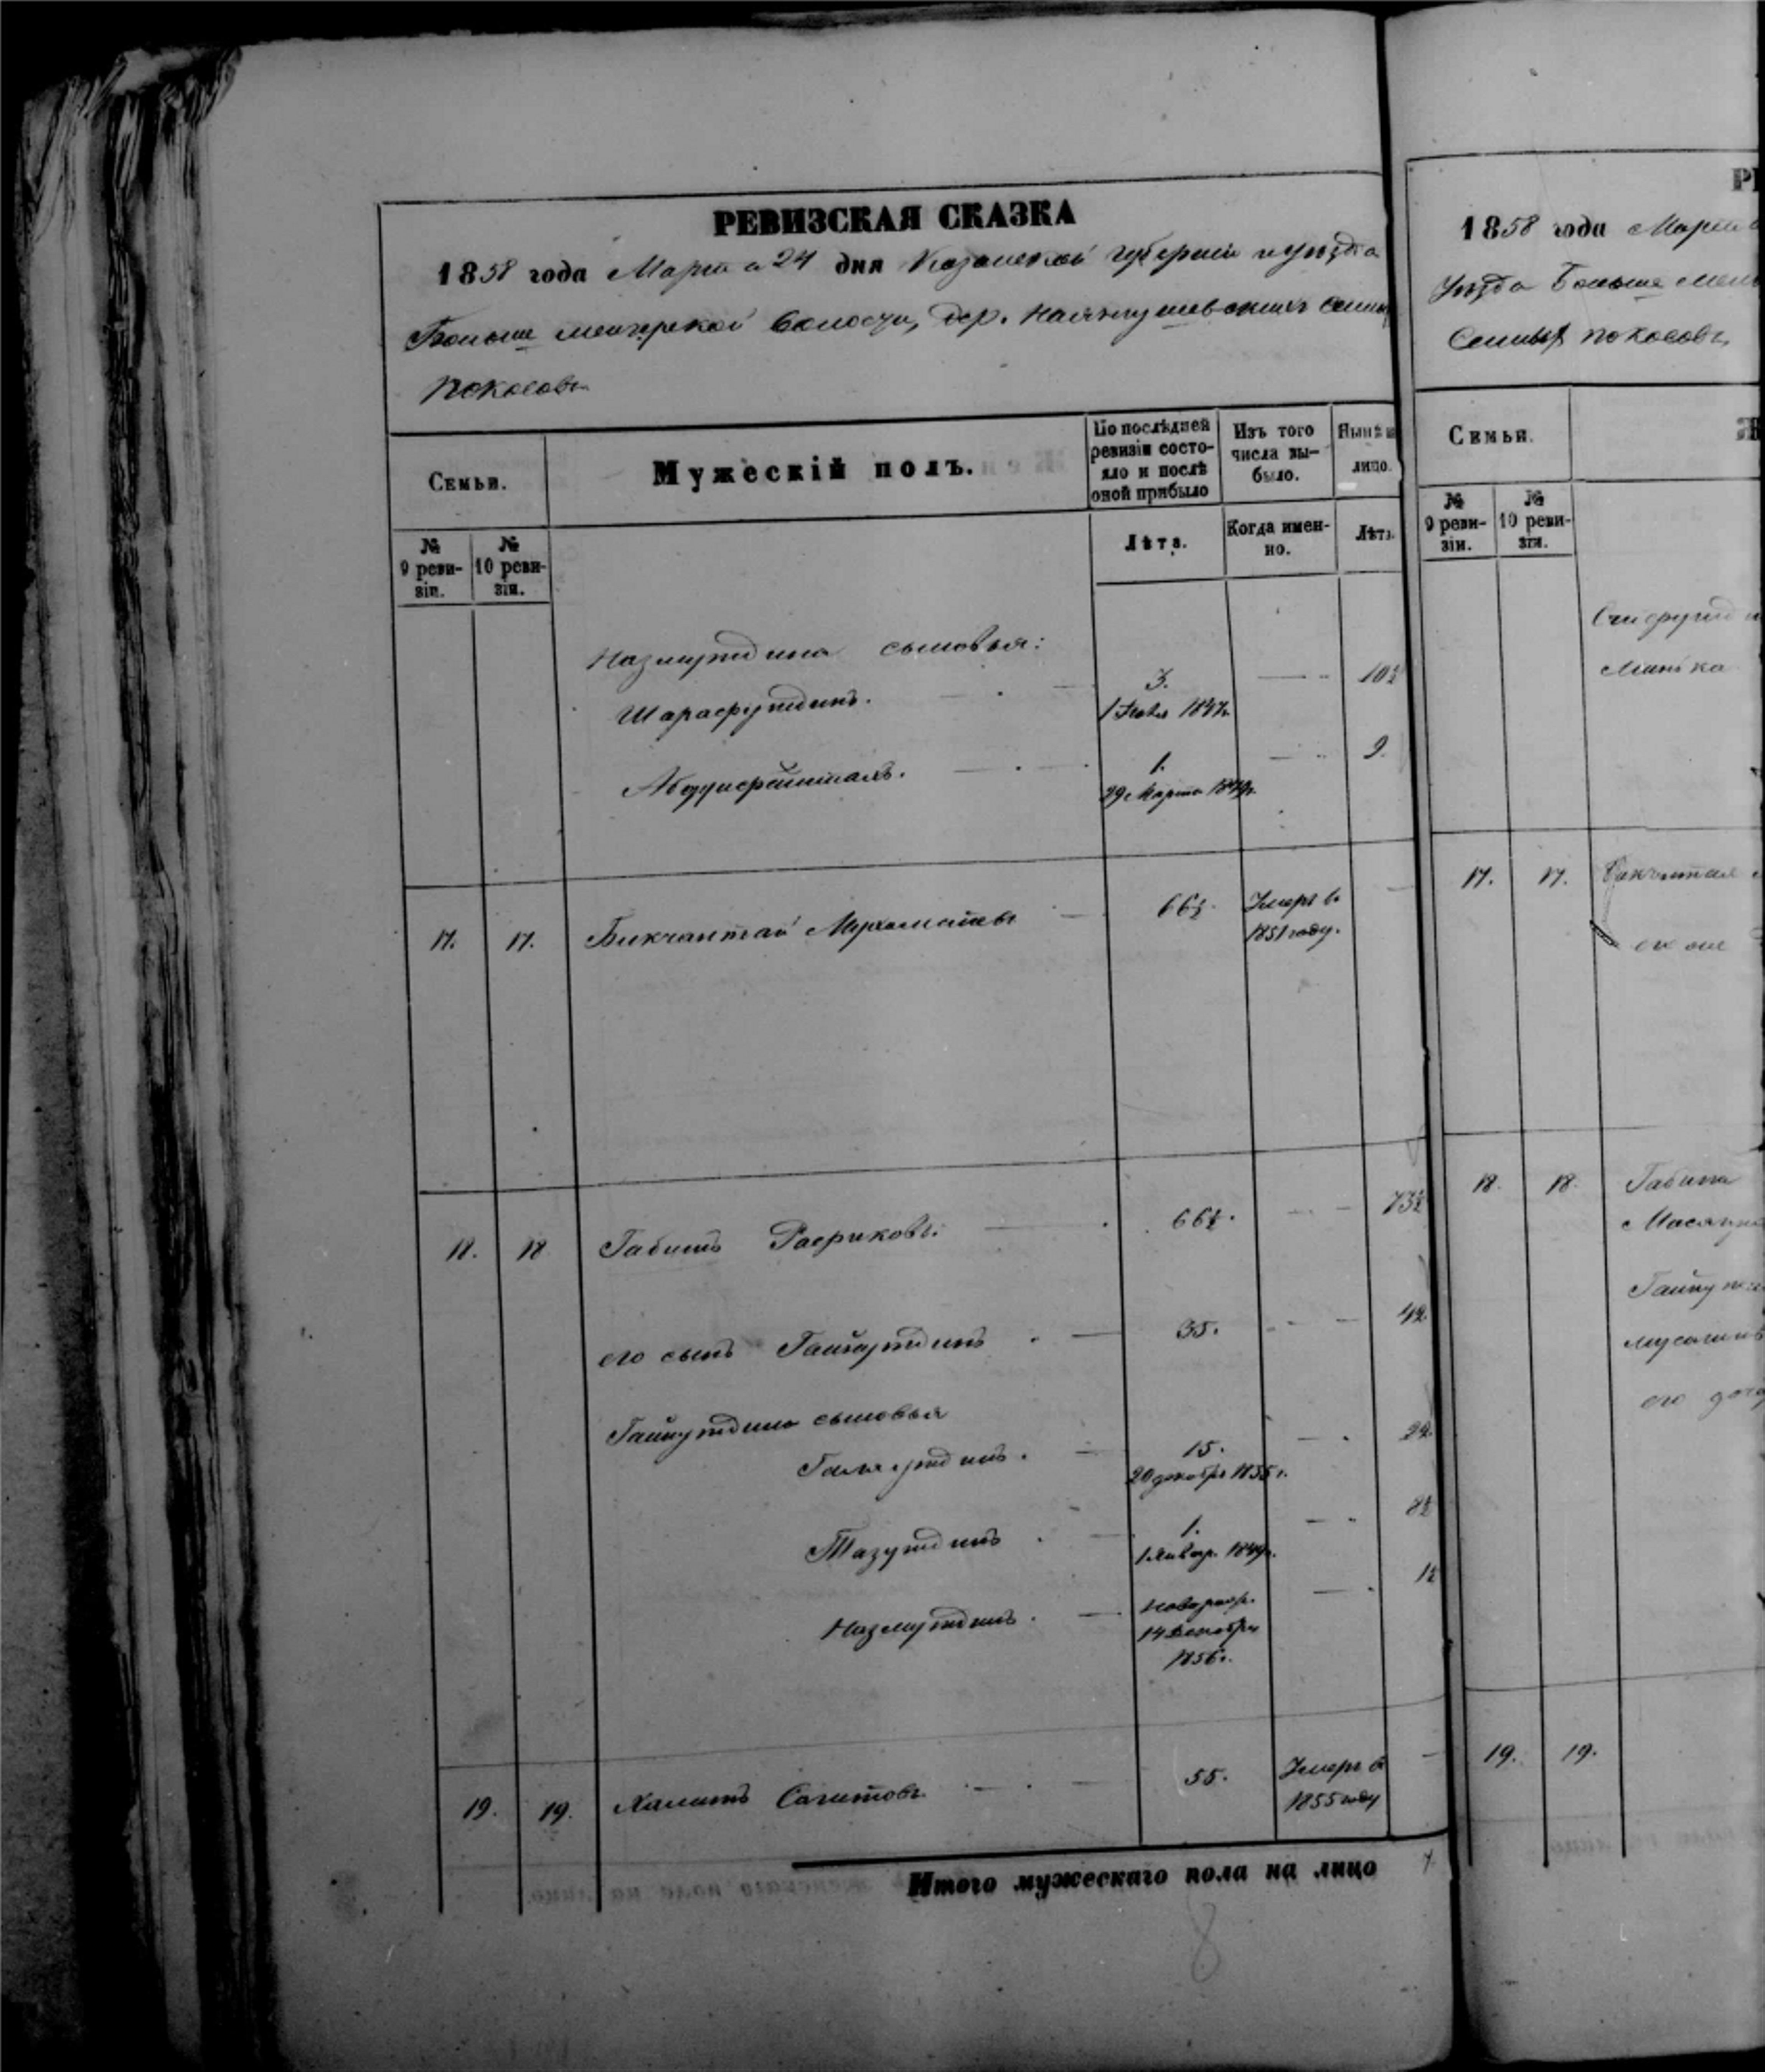 РЕВИЗСКАЯ СКАЗКА
1858 года Марта 24 дня Казанской губернии и уѣзда
Больше менгерской волости, дер.
покосовъ
Семьи.
Мужескій полъ.
По послѣдней ревизіи состо-
яло и послѣ
оной прибыло
Изъ того
числа вы-
было.
Нынѣ
лицо.
№
9 реви-
зіи.
№
10 реви-
зіи.
Лѣта.
Когда имен-
но.
Лѣта.
Назмутдина сыновья:
Шарафутдинъ. 3. 10½
1847г.
1. 9.
29 Марта 1849г.
17. 17. Бикчантай 66½. Умеръ въ
1851 году.
18. 18 Габитъ Рафиковъ. 66½. 73½
его сынъ Гайнутдинъ 35. 42
Гайнутдина сыновья
Галяутдинъ. 15. 22
20 декабря 1835г.
Тазутдинъ 1. 8½
1 Январ. 1849г.
Назмутдинъ. новорож. 1½
14 Декабря
1856г.
19. 19. Хамитъ Сагитовъ 55. Умеръ въ
1855 году
Итого мужескаго пола на лицо 7.
8
РЕ
1858 года Марта
Уѣзда Больше мен
покосовъ
Семьи.
Ж
№
9 реви-
зіи.
№
10 реви-
зіи.
17. 17.
18. 18. Габита
его доч
19. 19.